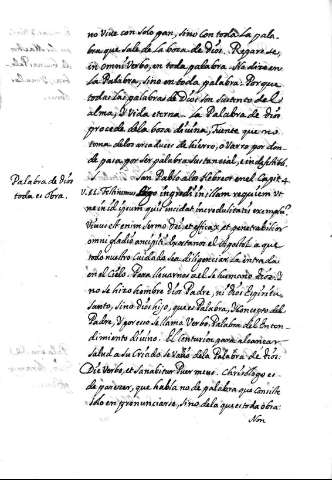 no Vive con solo pan, sino con toda la pala-
bra que sale de la boca de Dios. Regare se,
in omni Verbo, en toda palabra. No dize en
la Palabra, sino en toda palabra: Porque
todas las palabras de Dios son sustento del
alma, y Vida eterna. La Palabra de Dios
procede de la boca divina, fuente que no
toma de los arcaduces de hierro, o barro por don-
de passa, por ser palabra sustancial, e indefectible.
San Pablo a los Hebreos en el Capit. 4.
Palabra de Dios
toda es Obra.
V. 11. Festinemus ergo ingredi in illam requiem ut
ne in id ipsum quis incidat incredulitatis exemplum.
Vivus est enim sermo Dei, et efficax, et penetrabilior
omni gladio ancipiti. el Apostol a que
todo nuestro Cuidado sea diligenciar la entrada
en el Cielo. Para llevarnos a el se humano Dios. Y
no se hizo hombre Dios Padre, ni Dios Espiritu
Santo, sino Dios hijo, que es Palabra, y Concepto del
Padre, y por esso se llama Verbo, Palabra del Enten-
dimiento divino. El Centurion para alcançar
salud a su Criado se valio de la Palabra de Dios.
Dic Verbo, et sanabitur Puer meus. Chrisologo es
de parecer, que hablò no de palabra que consiste
solo en pronunciarse, sino de la que es toda obra:
Non